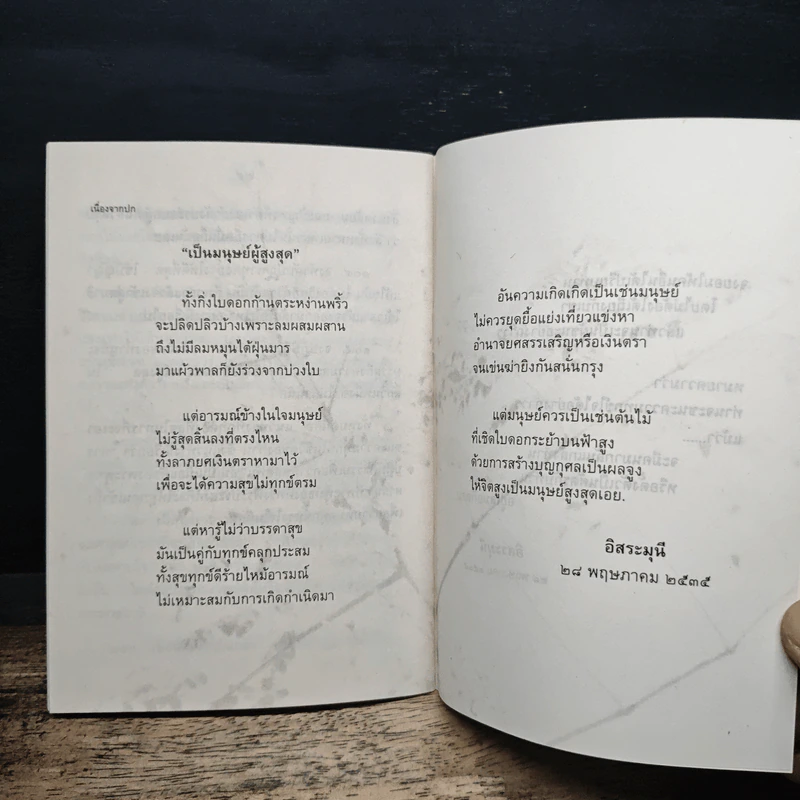 เนื่องจากปก
“เป็นมนุษย์ผู้สูงสุด”
ทั้งกิ่งใบดอกก้านตระหง่านพริ้ว
จะปลิดปลิวบ้างเพราะลมผสมผสาน
ถึงไม่มีลมหมุนไต้ฝุ่นมาร
มาแผ้วพาลก็ยังร่วงจากบ่วงใบ
แต่อารมณ์ข้างในใจมนุษย์
ไม่รู้สุดสิ้นลงที่ตรงไหน
ทั้งลาภยศเงินตราหามาไว้
เพื่อจะได้ความสุขไม่ทุกข์ตรม
แต่หารู้ไม่ว่าบรรดาสุข
มันเป็นคู่กับทุกข์คลุกประสม
ทั้งสุขทุกข์ดีร้ายไหม้อารมณ์
ไม่เหมาะสมกับการเกิดกำเนิดมา
อันความเกิดเกิดเป็นเช่นมนุษย์
ไม่ควรยุดยื้อแย่งเที่ยวแข่งหา
อำนาจยศสรรเสริญหรือเงินตรา
จนเข่นฆ่ายิงกันสนั่นกรุง
แต่มนุษย์ควรเป็นเช่นต้นไม้
ที่เชิดใบดอกระย้าบนฟ้าสูง
ด้วยการสร้างบุญกุศลเป็นผลจูง
ให้จิตสูงเป็นมนุษย์สูงสุดเอย.
อิสระมุนี
๒๘ พฤษภาคม ๒๕๓๕